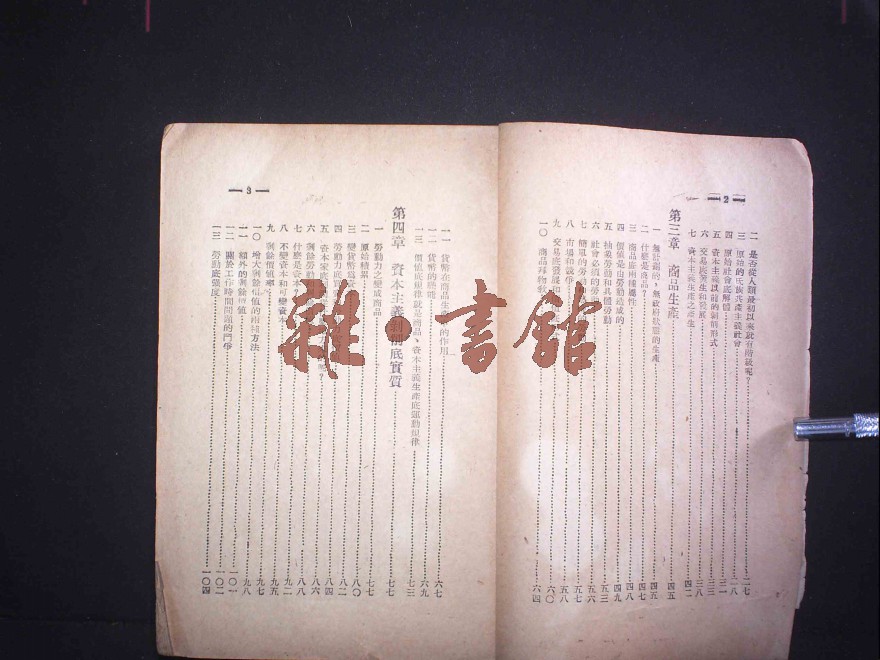 —2—
二 是否從人類最初以來就有階級呢？ 二七
三 原始的氏族共產主義社會 二八
四 原始社會底解體 三一
五 資本主義以前的剝削形式 三三
六 交易底發生和發展 三八
七 資本主義生產之產生 四二
第三章 商品生產 四五
一 無計劃的，無政府狀態的生產 四五
二 什麼是商品 四八
三 商品底兩種屬性 四八
四 價值是由勞動造成的 四九
五 抽象勞動和具體勞動 五三
六 社會必須的勞 五六
七 簡單的勞 五七
八 市場和競爭 五八
九 交易底發展和 六〇
一〇 商品拜物教 六四
—3—
一一 貨幣在商品生 的作用 六七
一二 貨幣的職能 六九
一三 價值底規律就是商品、資本主義生產底運動規律 七三
第四章 資本主義剝削底實質 七七
一 勞動力之變成商品 七七
二 原始積累 八〇
三 變貨幣為資 八二
四 勞動力底 八四
五 資本家底 八六
六 剩餘勞動
七 什麼是資本 呢？ 八八
八 不變資本和可變資本 九二
九 剩餘價值率 九五
一〇 增大剩餘價值的兩種方法 九七
一一 額外的剩餘價值 九八
一二 關於工作時間問題的鬥爭 一〇一
一三 勞動底強度 一〇四
雜·書館